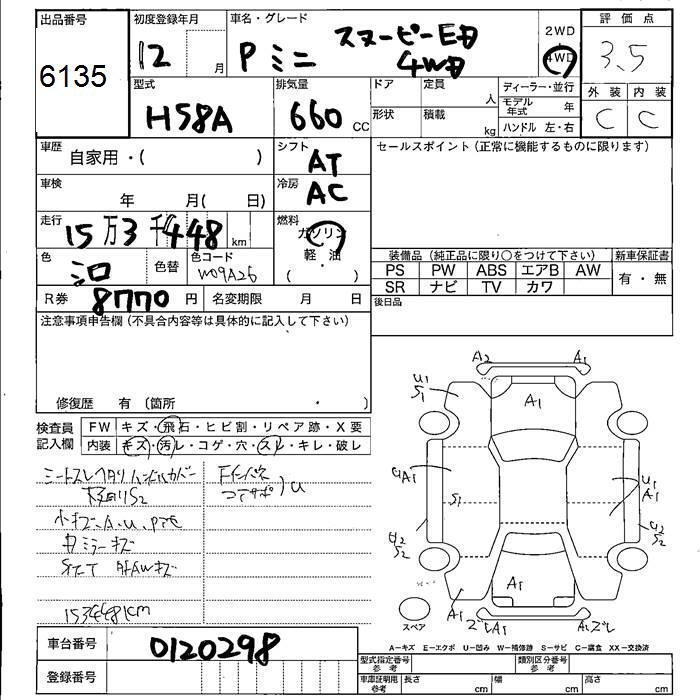 出品番号
6135
初度登録年月
12 月
車名・グレード
Pミニ スヌーピーE日
4WD
2WD
4WD
評価点
3.5
型式
H58A
排気量
660 CC
ドア
形状
定員
人
積載
kg
ディーラー・並行
モデル年式 年
ハンドル 左・右
外装 内装
C C
車歴
自家用・( )
シフト
AT
セールスポイント (正常に機能するものに限ります)
車検
年 月( 日)
冷房
AC
走行
15万3千448 km
燃料
ガソリン
軽油
( )
色
色替
色コード
W09A26
装備品 (純正品に限り○をつけて下さい) 新車保証書
PS PW ABS エアB AW
SR ナビ TV カワ
有・無
R券 8770 円 名変期限 月 日
後日品
注意事項申告欄 (不具合内容等は具体的に記入して下さい)
修復歴 有 (箇所 ・ )
検査員
記入欄
FW キズ・飛石・ヒビ割・リペア跡・X要
内装 キズ・汚レ・コゲ・穴・スレ・キレ・破レ
シートスレ ヘタリ ハンドルカバー
Fインパネ
S2
U
小キズ、A、U、P
ミラーキズ
AWキズ
153448km
A2 A1
U1
S1
A1
UA1
S1
U1
A1
U2
S2
U2
S2
A1
A1
A1
A1
スペア
A—キズ E—エクボ U—凹み W—補修跡 S—サビ C—腐食 XX—交換済
車台番号
0120298
登録番号
型式指定番号
参考
類別区分番号
参考
車庫証明用
参考
長さ cm 幅 cm 高さ cm